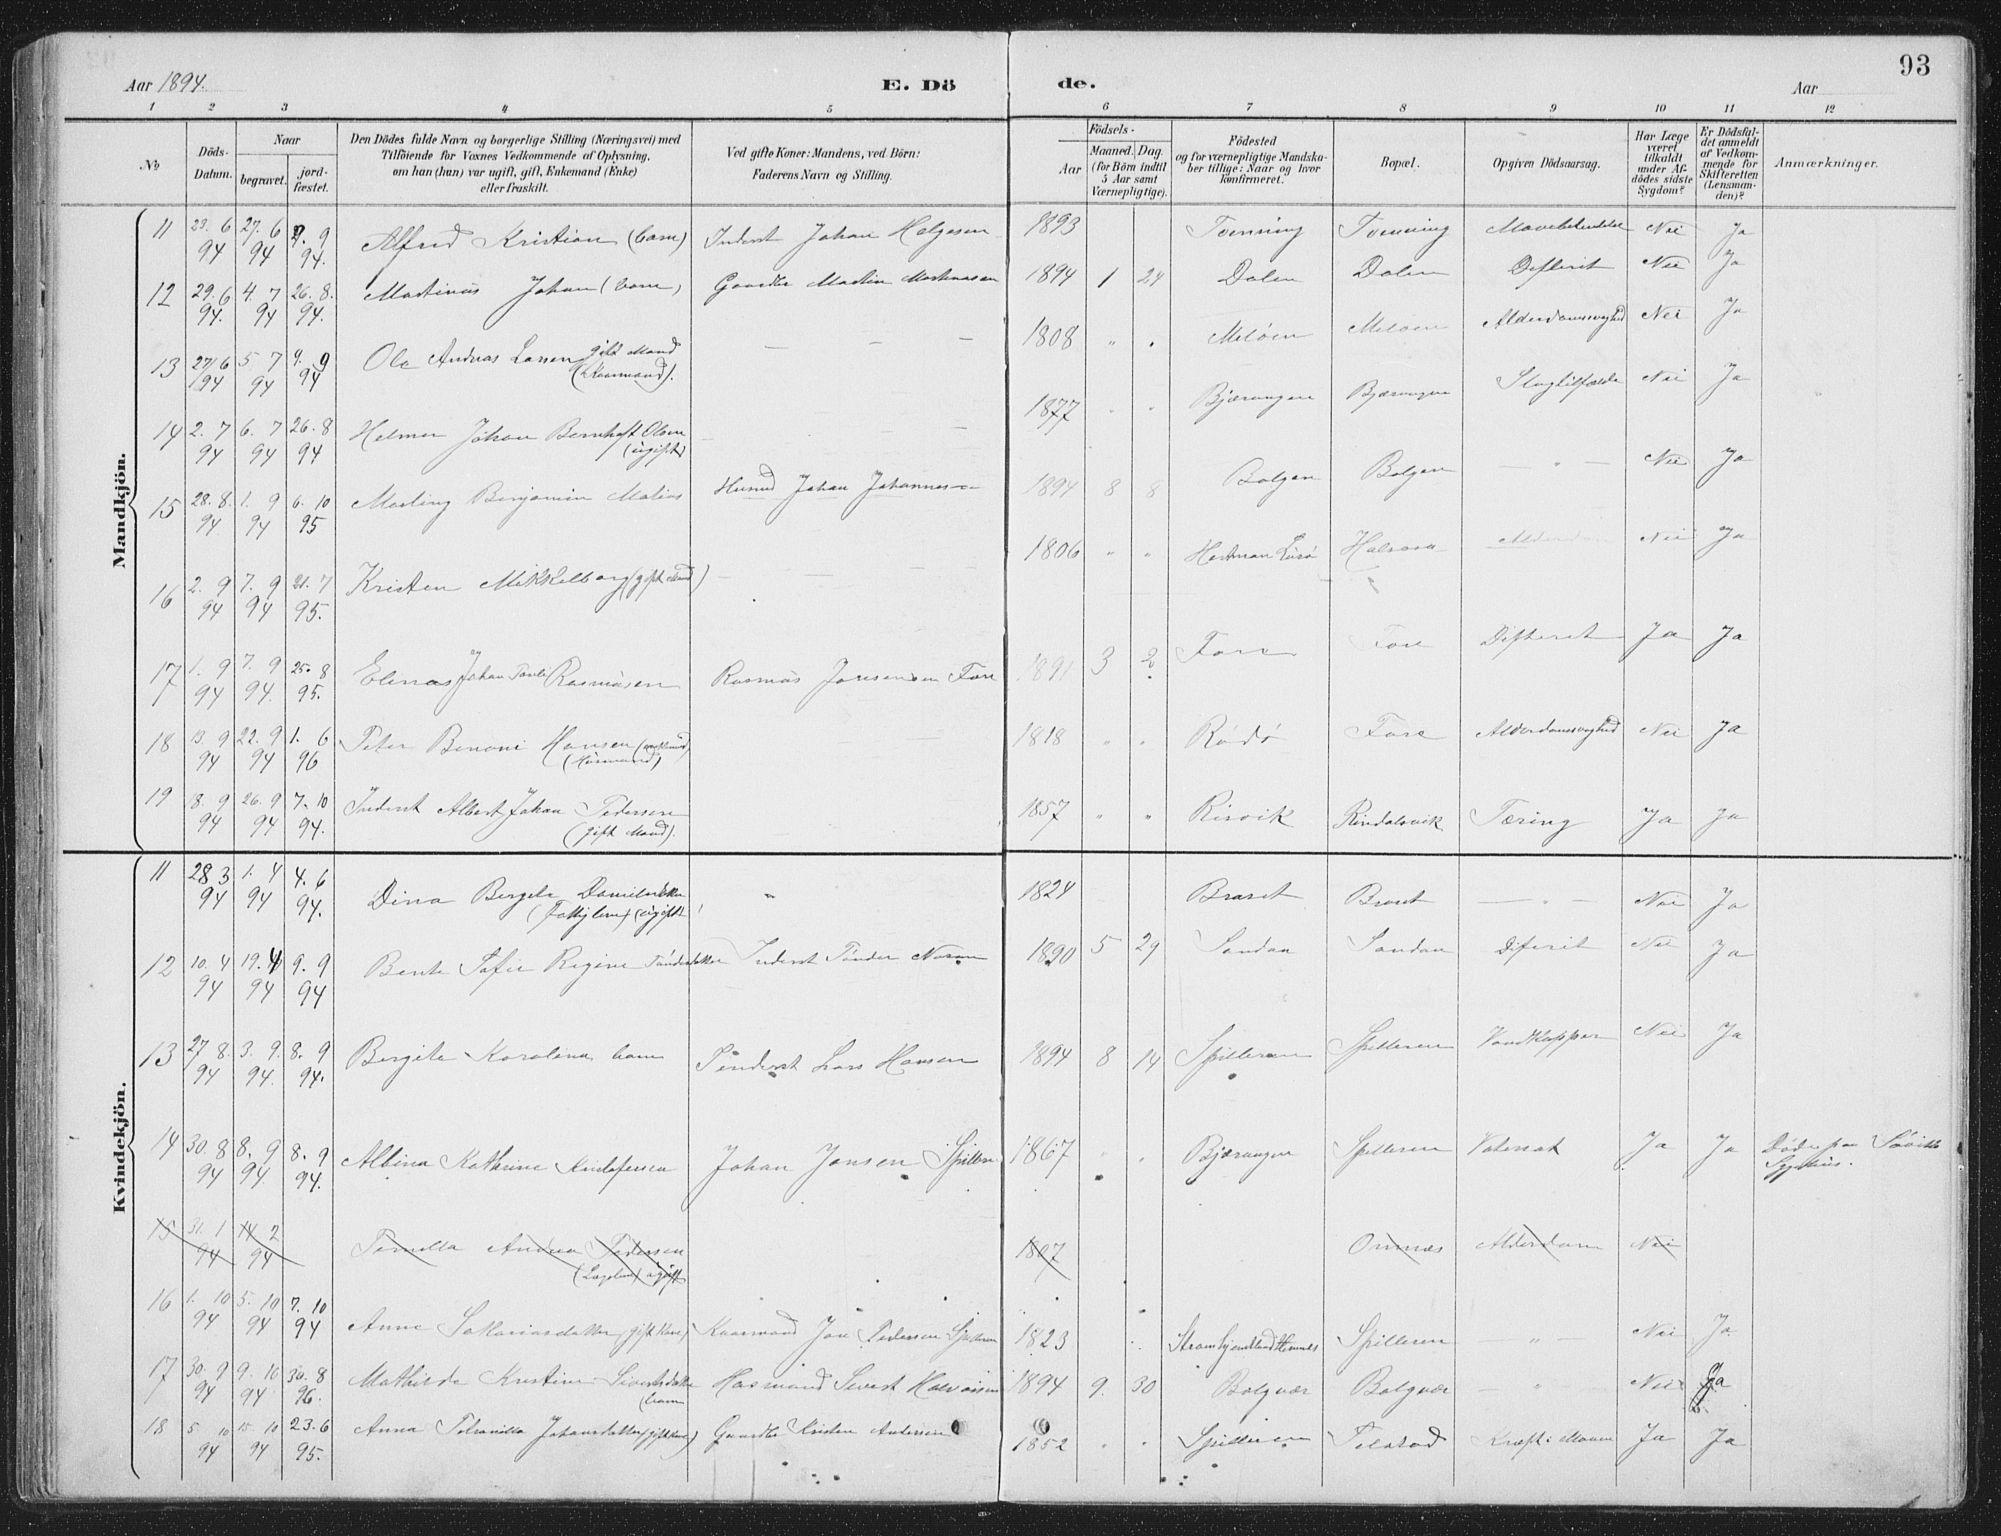 93
Aar 1894.
E. Dö
de.
Aar
1 2 3 4 5 6 7 8 9 10 11 12
№
Döds-Datum.
Naar
begravet.
jord-fæstet.
Den Dödes fulde Navn og borgerlige Stilling (Næringsvei) med
Tilföiende for Voxnes Vedkommende af Oplysning,
om han (hun) var ugift, gift, Enkemand (Enke)
eller fraskilt.
Ved gifte Koner: Mandens, ved Börn:
Faderens Navn og Stilling.
Födsels-
Aar
Maaned. Dag
(for Börn indtil
5 Aar samt
Værnepligtige).
Födested
og for værnepligtige Mandska-
ber tillige: Naar og hvor
konfirmeret.
Bopæl.
Opgiven Dödsaarsag.
Har Læge
været
tilkaldt
under Af-
dödes sidste
Sygdom?
Er Dödsfal-
det anmeldt
af Vedkom-
mende for
Skifteretten
(Lensman-
den)?
Anmærkninger.
Mandkjön.
11 23. 6 94 27. 6 94 9. 94. Alfred Kristian (barn) Inderst Johan Helgesen 1893 Tvenning Tvenning Nei Ja
12 29. 6 94. 4. 7 94 26. 8. 94. Martinus Johan (barn) Martin Martinussen 1894 1 24 Dalen Dalen Difterit Nei Ja
13 27/6 94 5 7 94 9. 9 94 Ola Andreas Larsen gift Mand (Kaarmand). — — — 1808 " " Meløen Meløen Alderdomssvaghed Nei Ja
14 2. 7 94 6. 7 94 26. 8 94 Helmer Johan Bernhoft Olsen (ugift) 1877 " " Bjærangen Bjærangen Slagtilfælde Nei Ja
15 28. 8. 94 1. 9 94 6. 10 95 Benjamin Matias Husmd Johan Johannes 1894 8 8 Bolgen Bolgen — " — Nei Ja
16 2. 9 94 7. 9 94 21. 7 95. Kristen Mikkelborg (gift Mand) 1806 " " Lurö Halsosa Nei Ja
17 1. 9 94 7. 9 94. 25. 8 95. Elenas Johan Pauli Rasmusen Rasmus Fore 1891 3 2 Fore Fore Difterit Ja Ja
18 13. 9 94 22. 9 94 1. 6 96 Peter Benoni Hansen (Husmand) 1818 " " Rödö Fore Alderdomssvaghed Nei Ja
19 8. 9 94 26. 9 94 7. 10 94. Inderst Albert Johan Pedersen (gift Mand). 1857 " " Risvik Rendalsvik Tæring Ja Ja
Kvindekjön.
11 28 3 94 1. 4 94 4. 6 94. Dina Bergete Danielsdatter (ugift) " 1824 Braset Braset — " — Nei Ja
12 10. 4 94 19. 4 94 9. 9 94 Bente Sofie Regine Tönderdatter Inderst Tönder 1890 5 29 Sandaa Sandaa Difterit Nei Ja
13 27 8. 94 3. 9. 94. 8. 9 94. Bergite Karolina barn Inderst Lars Hansen 1894 8 14 Spilleren Spilleren Vandkopper Nei Ja
14 30. 8 94 8. 9 94 8. 9 94. Albina Kathrine Kristofersen Johan Jansen Spilleren 1867 " " Bjærangen Spilleren Vatersot Ja Ja Död paa Sygehus.
15 31. 1 94 14 2 94 Pernella Andrea Pedersen (Lægdlem) ugift 1807 Ornnæs Alderdom Nei
16 1. 10 94 5. 10 94 7. 10 94 Anne Sakariasdatter (gift Kone) Kaarmand Jon Pedersen 1823 " Spilleren — " — Nei Ja
17 30. 9 94 9. 10 94 30. 8 96. Mathilde Kristine Sivertsdatter (barn) Husmand Sivert Halvorsen 1894 9. 30 Bolgvær Bolgvær — " — Nei Ja
18 5 10 94 15. 10 94 23. 6 95. Anna Petronella Johansdatter (gift Kone) Gaardbr Kristen Andersen 1852 " " Spilleren Selstad Kræft i Maven Ja Ja